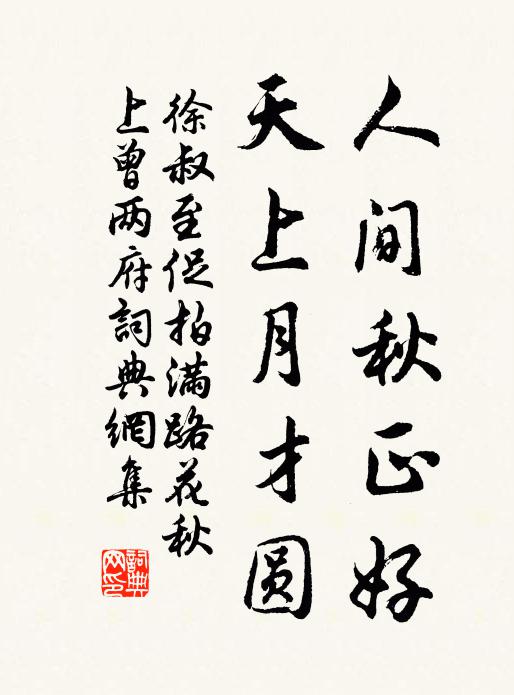 人间秋正好
天上月才圆
徐叔至促拍满路花秋
上曾两府詞典網集
詞典网印